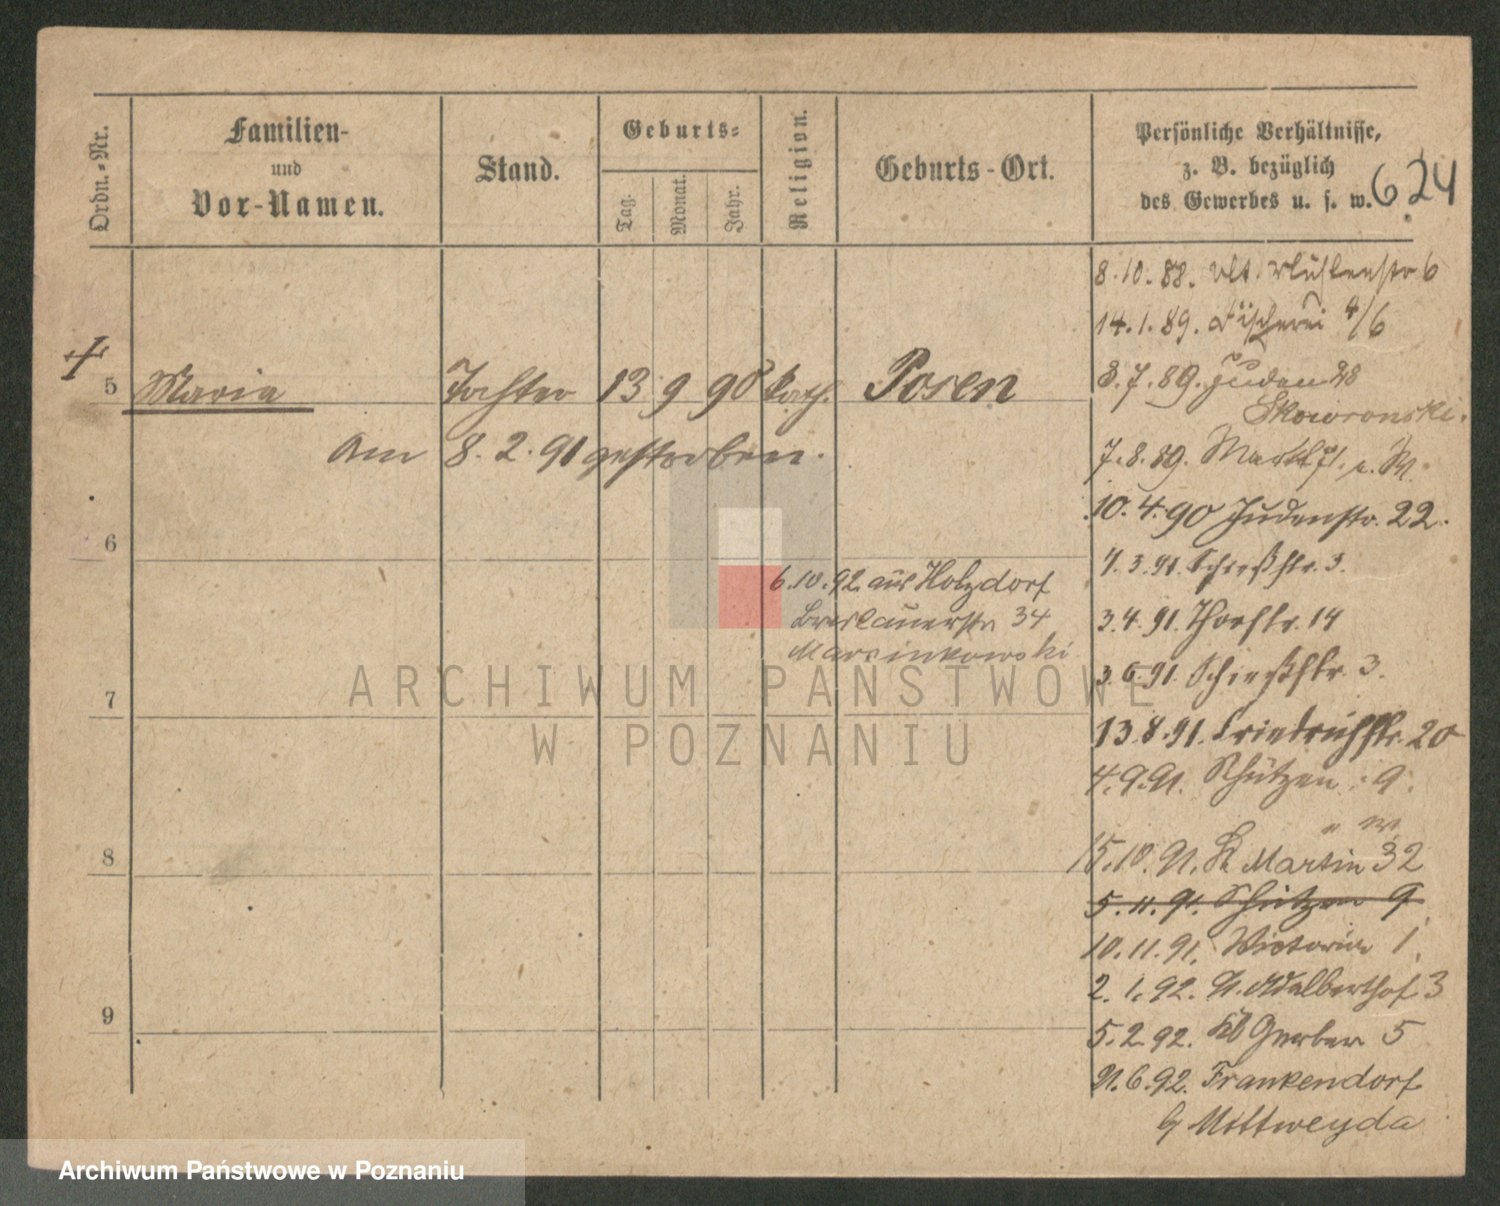 Ordn.-Nr.
Familien-
und
Vor-Namen.
Stand.
Geburts-
Tag.
Monat.
Jahr.
Religion.
Geburts-Ort.
Persönliche Verhältnisse,
z. B. bezüglich
des Gewerbes u. s. w.
624
5 Maria Tochter 13 9 90 kath. Posen
Am 8. 2. 91 gestorben.
6
7
8
9
6.10.92. aus Holzdorf
Breslauerstr 34
Marcinkowski
8.10.88. Mühlenstr 6
14.1.89. Fischerei 4/6
3.7.89. Juden 28
Skowronski.
7.8.89. Markt
10.4.90 Judenstr. 22.
4.3.91. Schießstr. 3.
3.4.91. Thorstr. 14
3.6.91. Schießstr. 3.
13.8.91. Friedrichstr. 20
4.9.91. Schützen 9.
15.10.91. St Martin 32
5.11.91. Schützen 9
10.11.91. Victoria 1.
2.1.92. Adalberthof 3
5.2.92. Kl Gerber 5
21.6.92. Frankendorf
b/ Mittweyda
ARCHIWUM PAŃSTWOWE
W POZNANIU
Archiwum Państwowe w Poznaniu